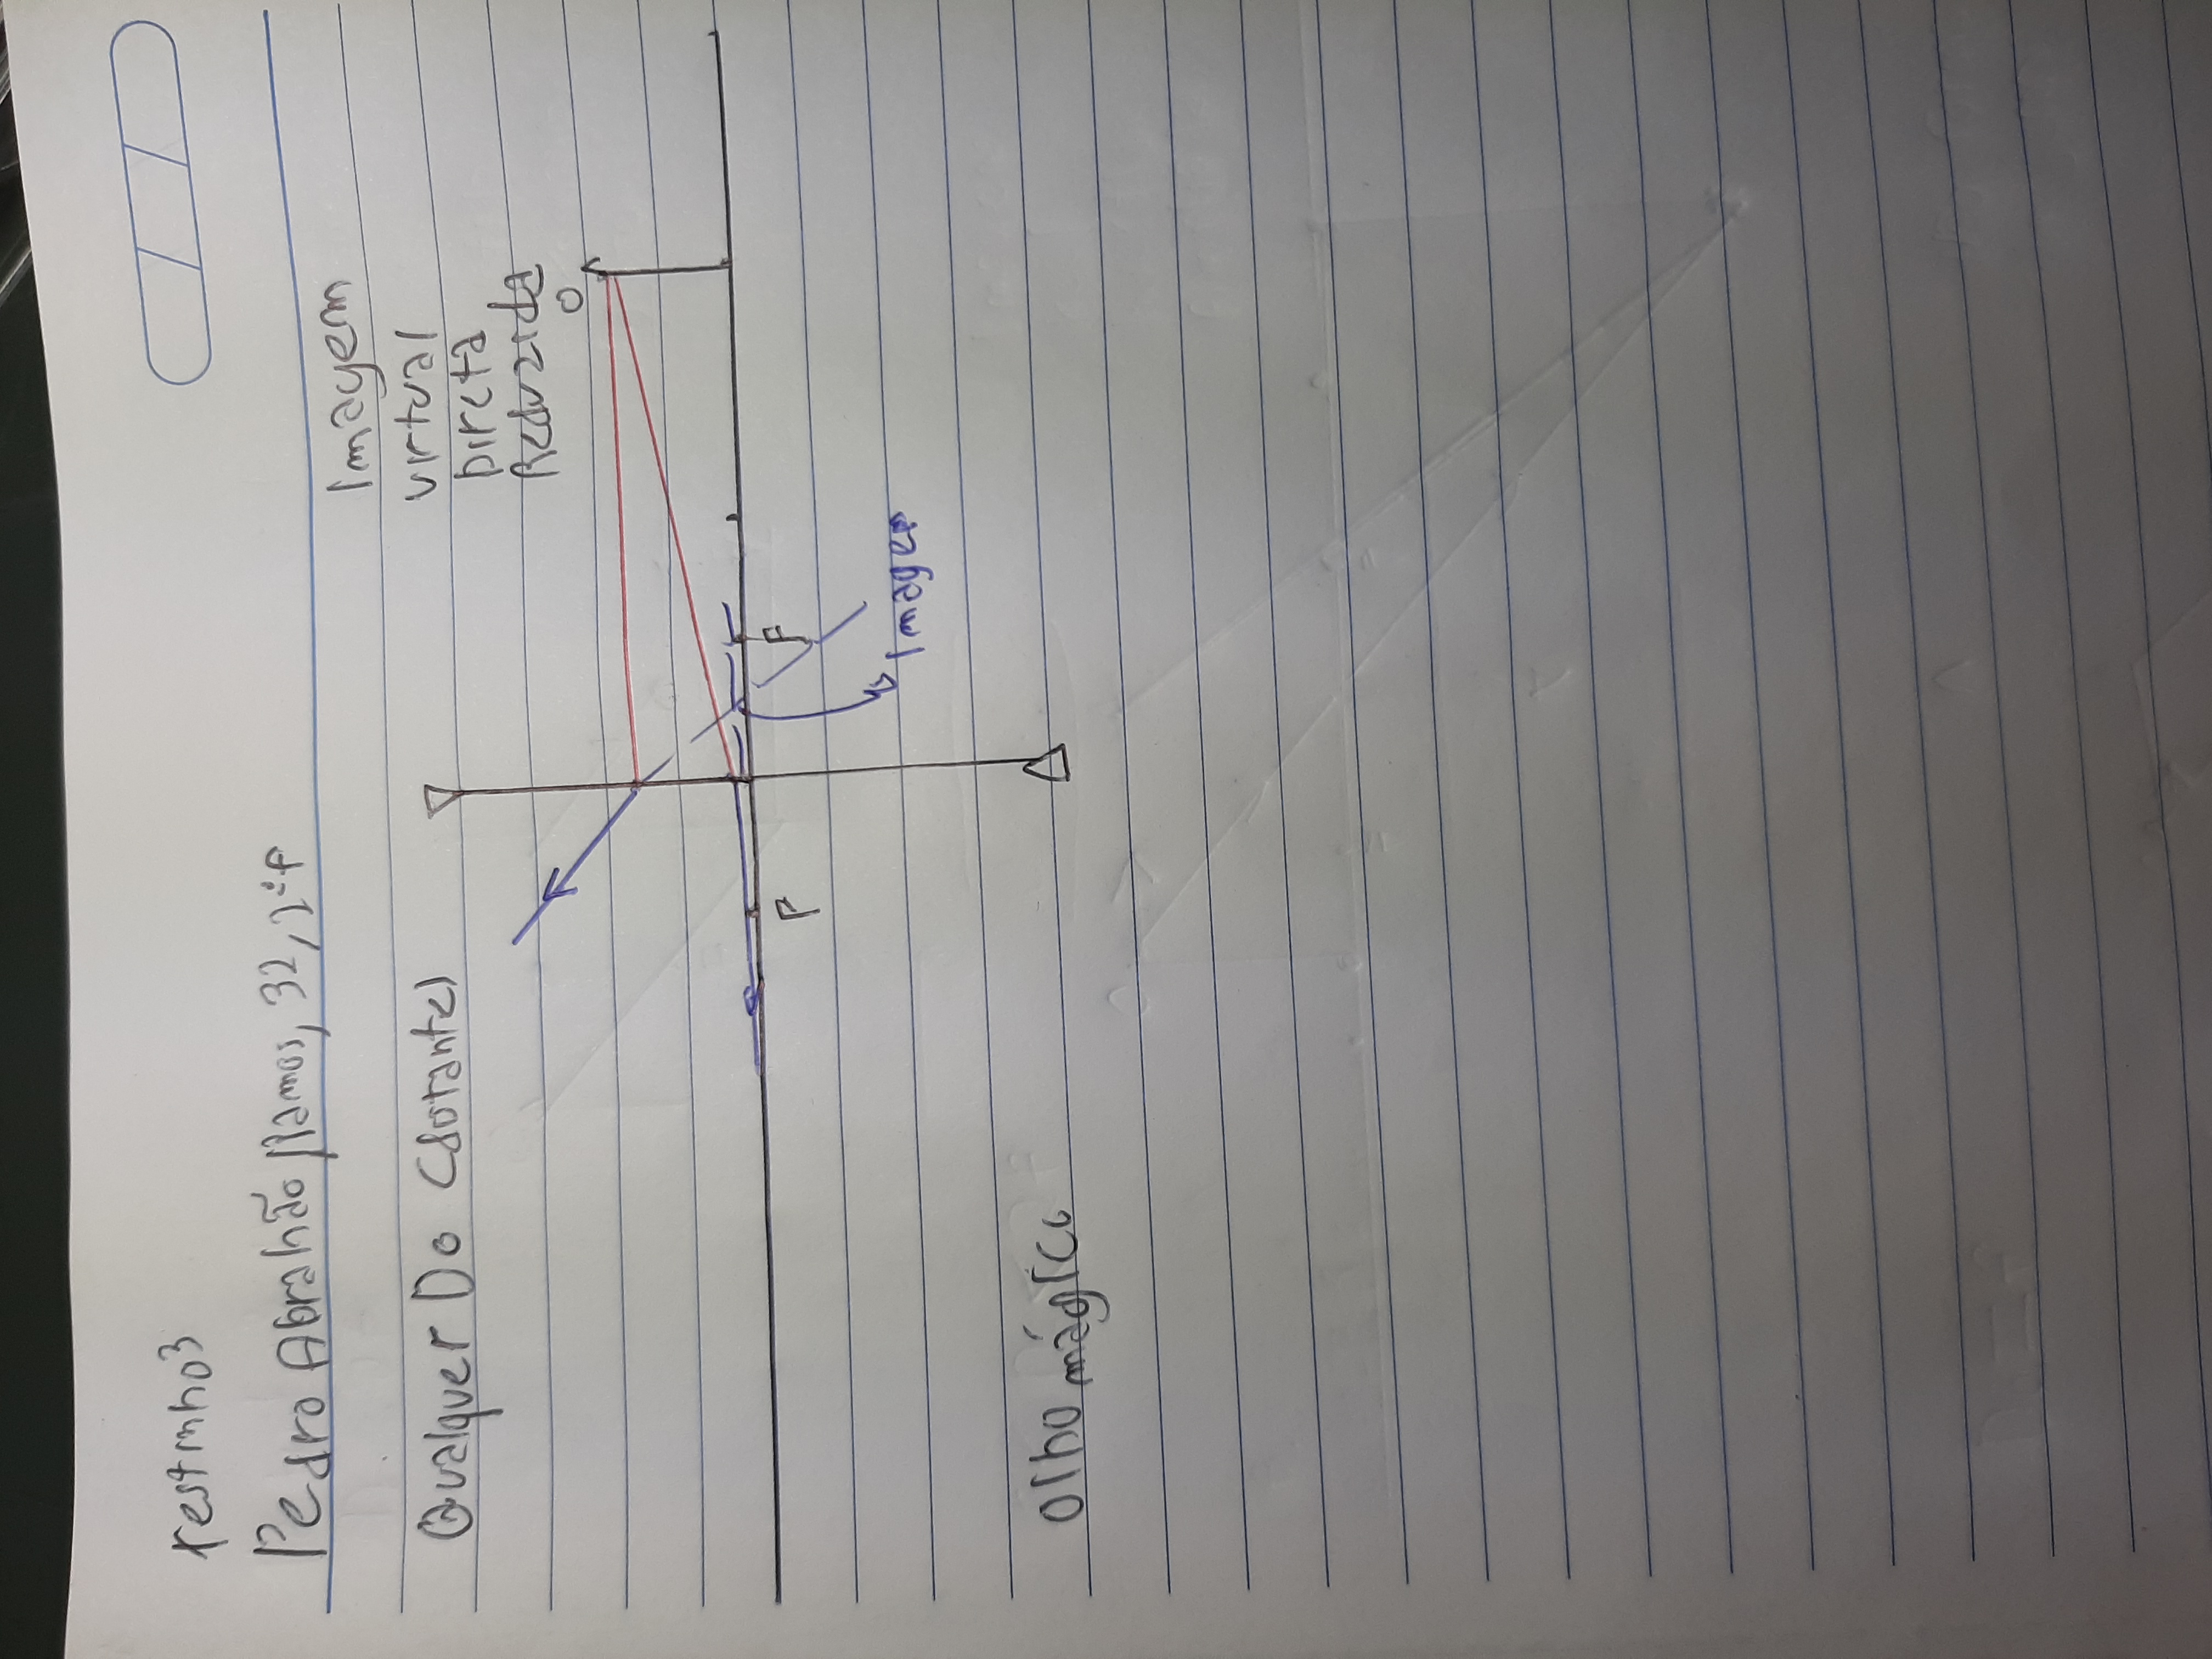 testinho3
Pedro Abrahão Ramos, 32, 2ºF
Imagem
Qualquer Do (distante)
virtual
Direta
Reduzida
O
F
F
Imagem
Olho mágico